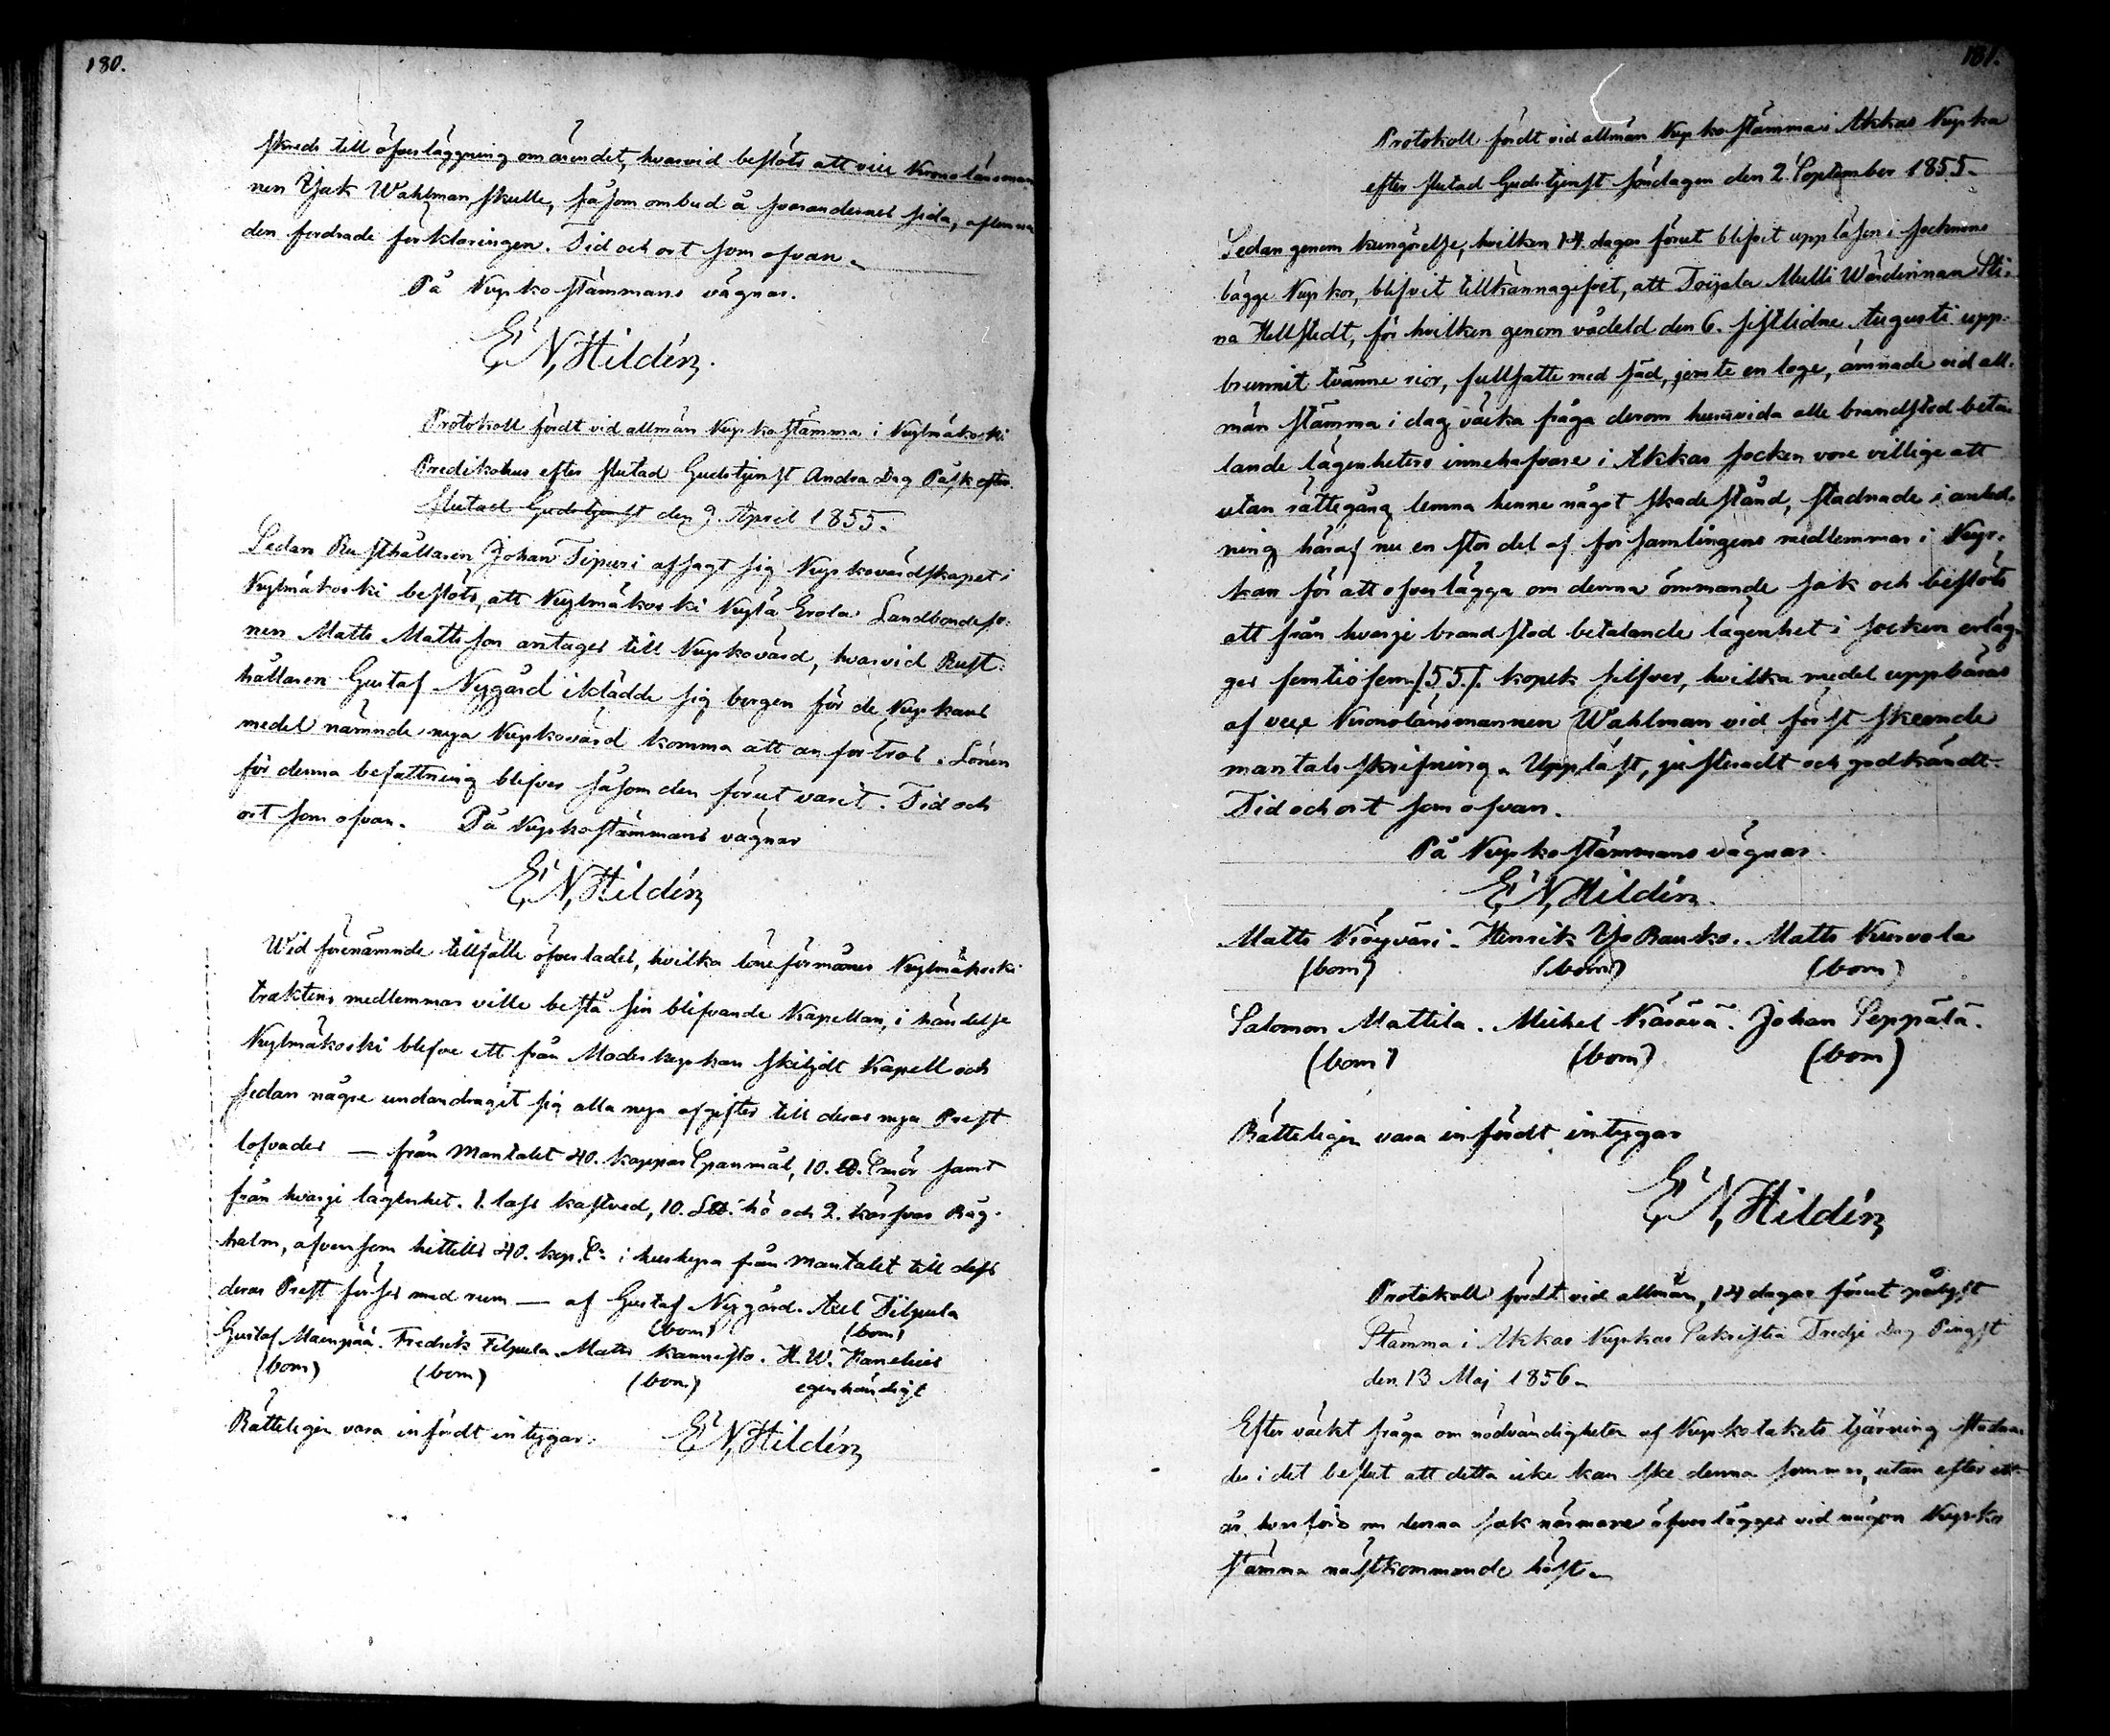 180.
skreds till öfverläggning om ärendet, hvarvid beslöts att vice Kronolänsman
nen Isak Wahlman skulle, såsom ombud å svarandernes sida, aflemna
den fordrade förklaringen. Tid och ort som ofvan.
På Kyrkostämmans vägnar.
E. N. Hildén.
Protokoll fördt vid allmän Kyrkostämma i Kylmäkoski
Predikohus efter slutad Gudstjenst Andra Dag Påsk efter
slutad Gudstjenst den 9. April 1855.
Sedan Rusthållaren Johan Tipuri afsagt sig Kyrkovärdskapet i
Kylmäkoski beslöts, att Kylmäkoski Kylä Erola Landbondeso-
nen Matts Mattsson antages till Kyrkovärd, hvarvid Rust-
hållaren Gustaf Nygård iklädde sig borgen för de Kyrkans
medel nämnde nya Kyrkovärd komma att anförtros. Lönen
för denna befattning blifver såsom den förut varit. Tid och
ort som ofvan. På Kyrkostämmans vägnar
E. N. Hildén
Wid förenämnde tillfälle öfverlades, hvilka löneförmåner Kylmäkoski
traktens medlemmar ville bestå sin blifvande Kapellan, i händelse
Kylmäkoski blefve ett från Moderkyrkan skiljdt Kapell och
sedan någre undandragit sig alla nya afgifter till deras nya Prest
lofvades — från Mantalet 40. kappar Spanmål, 10. ℔. Smör samt
från hvarje lägenhet. 1. lass kastved, 10. L℔. hö och 2. kärfvar Råg-
halm, äfvensom hittills 40. kop. Sr i hushyra från Mantalet till dess
deras Prest förses med rum — af Gustaf Nygård. Axel Filpula
(bom) (bom)
Gustaf Maenpää. Fredrik Filpula. Matts Kannisto. H. W. Hanelius
(bom) (bom) (bom) egenhändigt
Rätteligen vara infördt intygar: E. N. Hildén
181.
Protokoll fördt vid allmän Kyrkostämma i Akkas Kyrka
efter slutad Gudstjenst söndagen den 2. September 1855.
Sedan genom kungörelse, hvilken 14. dagar förut blifvit uppläsen i socknens
bägge Kyrkor, blifvit tillkännagifvet, att Toijala Mulli Wärdinnan Sti-
na Hellstedt, för hvilken genom vådeld den 6. sistlidne Augusti upp-
brunnit tvänne rior, fullsatte med säd, jemte en loge, ämnade vid all-
män stämma i dag väcka fråga derom huruvida alle brandstod beta-
lande lägenheters innehafvare i Akkas socken vore villige att
utan rättegång lemna henne något skadestånd, stadnade i anled-
ning häraf nu en stor del af församlingens medlemmar i Kyr-
kan för att öfverlägga om denna ömmande sak och beslöts
att från hvarje brandstod betalande lägenhet i socken erläg-
ges femtiofem /:55:/ kopek silfver, hvilka medel uppbäras
af vice Kronolänsmannen Wahlman vid först skeende
mantalsskrifning. Uppläst, justeradt och godkändt.
Tid och ort som ofvan.
På Kyrkostämmans vägnar
E. N. Hildén.
Matts Nräyväri. Henrik Yso Rauko. Matts Kurvola
(bom) (bom) (bom)
Salomon Mattila. Michel Käsävä. Johan Seppälä.
(bom) (bom) (bom)
Rätteligen vara infördt intygar
E. N. Hildén
Protokoll fördt vid allmän, 14 dagar förut pålyst
Stämma i Akkas Kyrkas Sakristia Tredje Dag Pingst
den 13 Maj 1856.
Efter väckt fråga om nödvändigheten af Kyrkotakets tjärning stadna-
des i det beslut att detta icke kan ske denna sommar, utan efter ett
år, hvarföre om denna sak närmare öfverlägges vid någon Kyrko
stämma nästkommande höst.